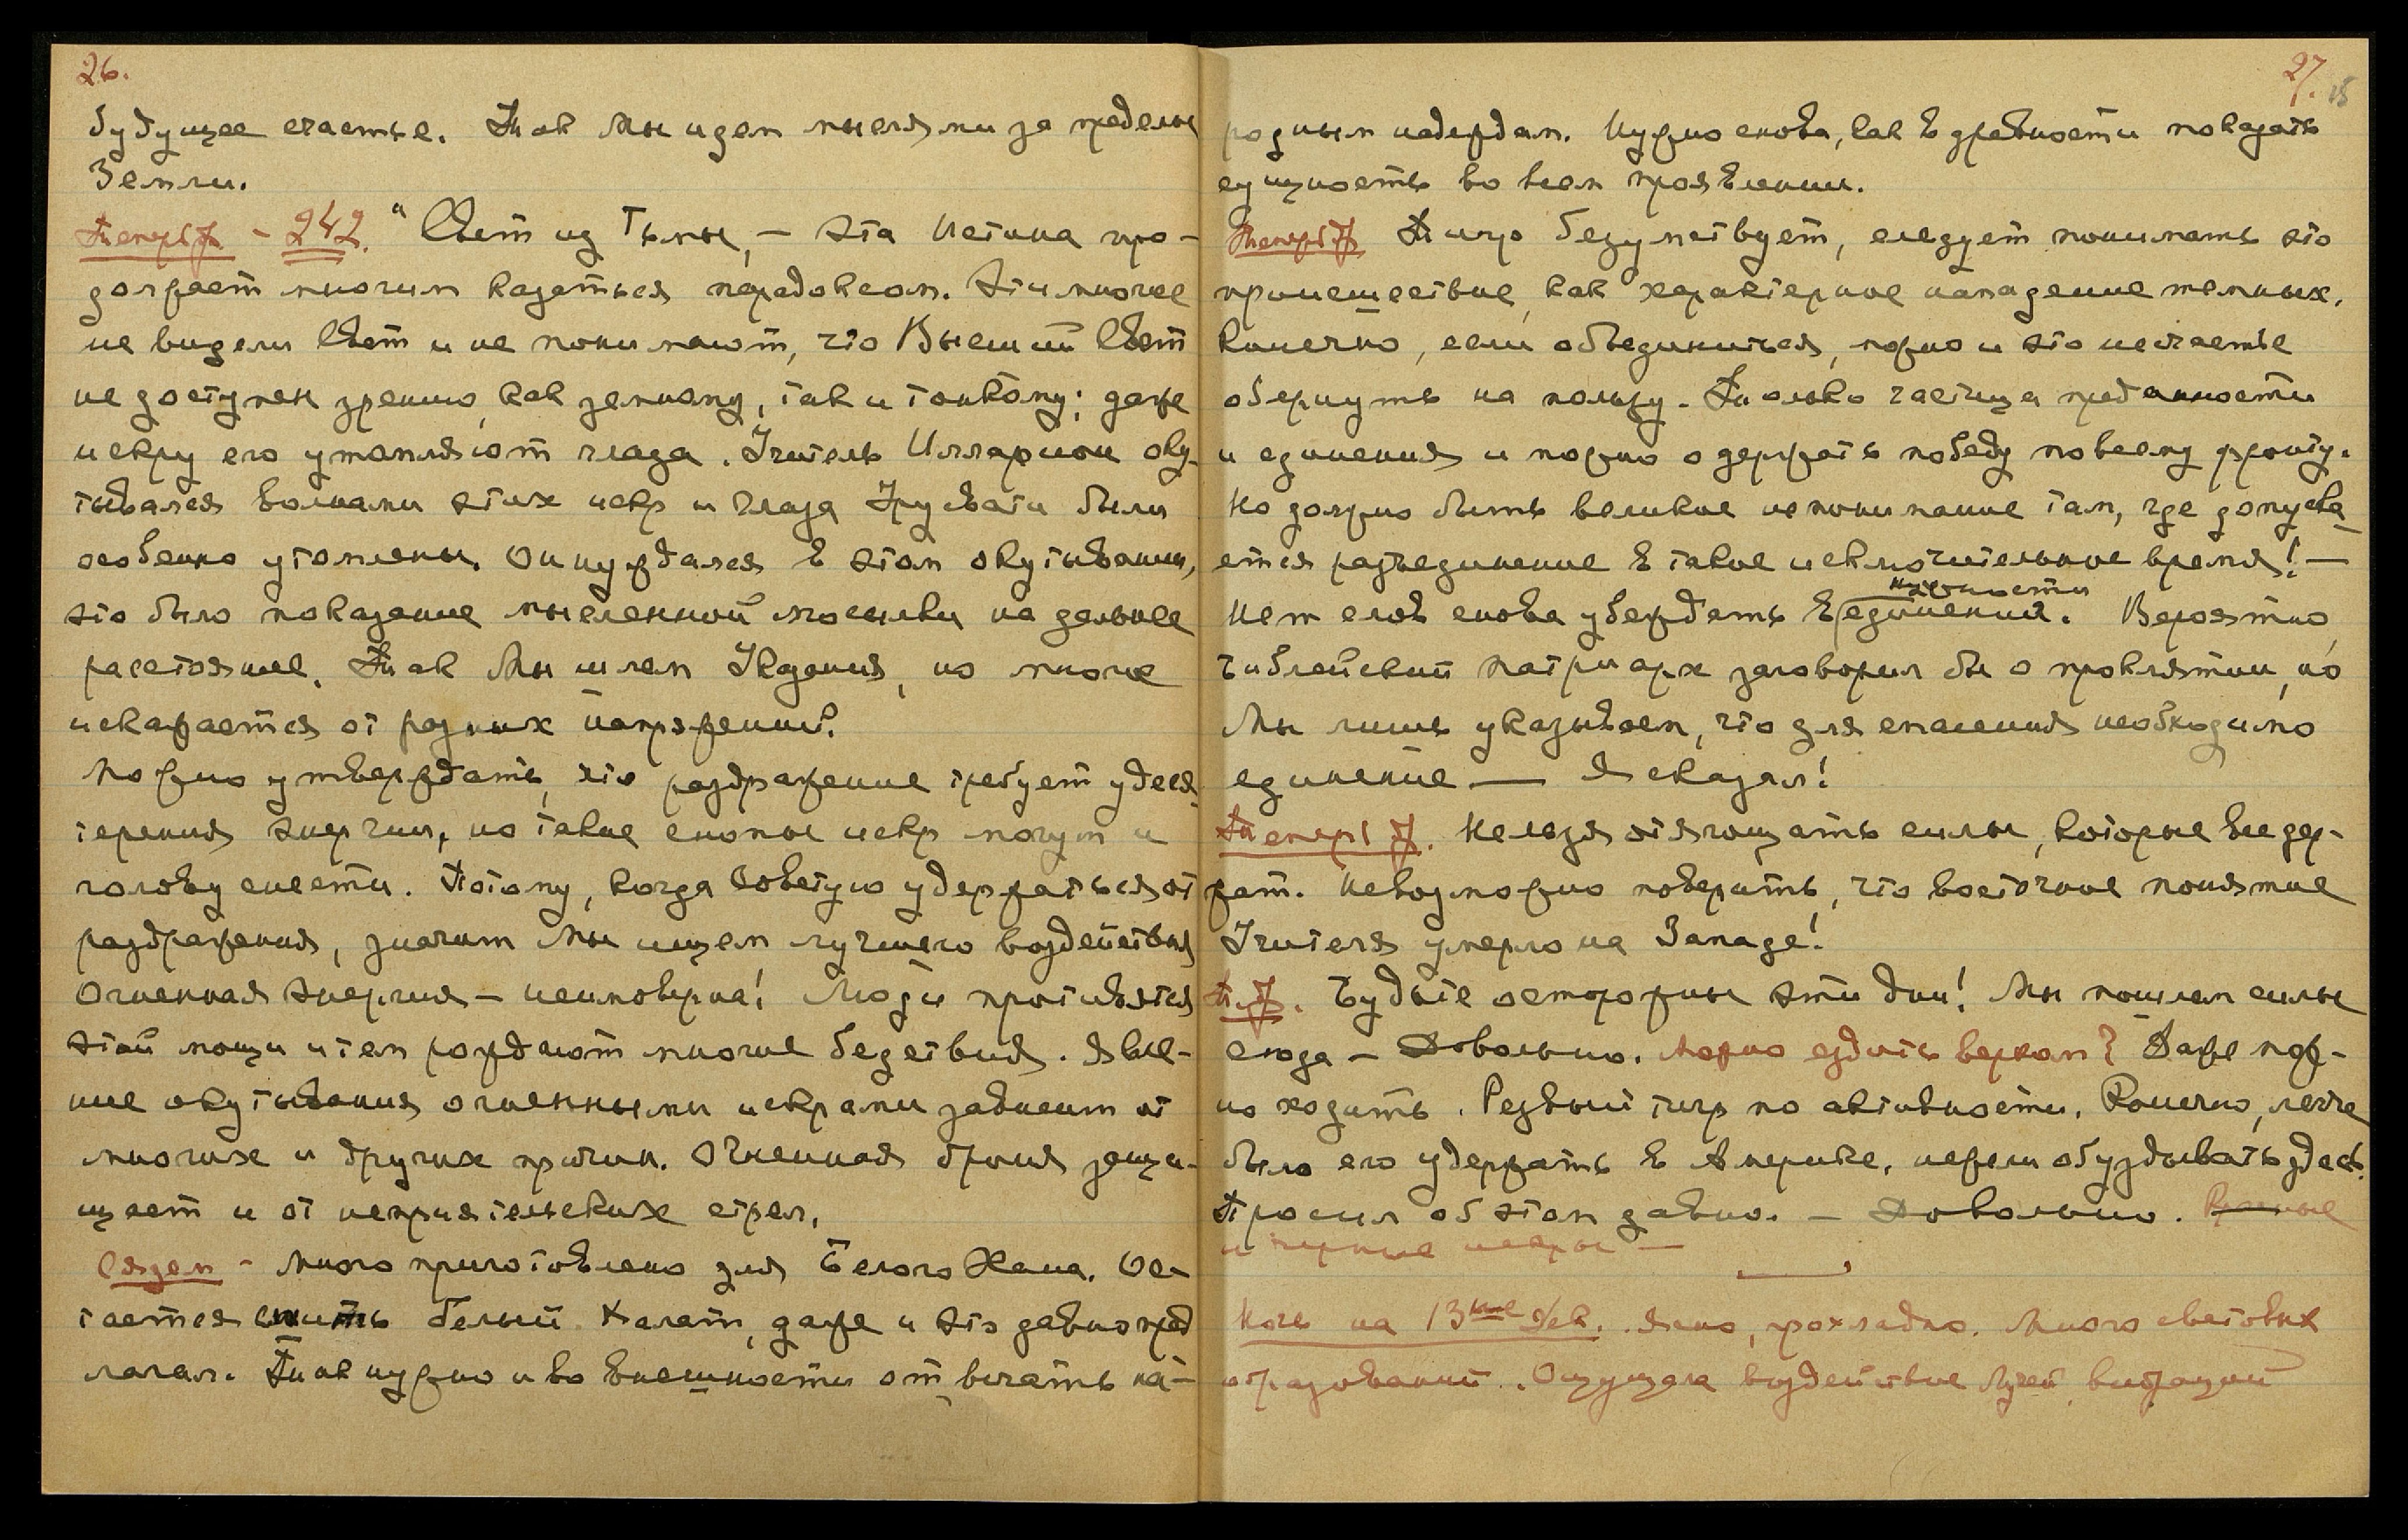 26.
будущее счастье. Так Мы идем мыслями за пределы
Земли.
Теперь ж - 242. "Свет из Тьмы, - эта Истина про-
должает многим казаться парадоксом. Эти многие
не видели Свет и не понимают, что Высший Свет
не доступен зрению, как земному, так и тонкому; даже
искру его утомляют глаза. Учитель Илларион оку-
тывался волнами этих искр и глаза Урусвати были
особенно утомлены. Он нуждался в этом окутывании,
это было показание мысленной посылки на дальнее
расстояние. Так Мы шлем Указания, но многое
искажается от разных напряжений.
Можно утверждать, что раздражение требует удеся-
терения энергии, но такие снопы искр могут и
голову снести. Потому, когда Советую удержаться от
раздражения, значит Мы ищем лучшего воздействия
Огненная энергия - неимоверна! Люди противятся
этой мощи и тем рождают многие бедствия. Явле-
ние окутывания огненными искрами зависит от
многих и других причин. Огненная броня защи-
щает и от неприятельских стрел.
Сядем - Много приготовлено для Белого Хана. Ос-
тается сшить белый халат, даже и это давно пред
лагал. Так нужно и во внешности отвечать на-
27. 15
родным надеждам. Нужно снова, как в древности показать
сущность во всем проявлении.
Теперь ж Тигр безумствует, следует понимать это
происшествие, как характерное нападение темных.
Конечно, если объединиться, можно и это несчастье
обернуть на пользу. Только частица преданности
и единения и можно одержать победу по всему фронту.
Но должно быть великое непонимание там, где допуска-
ется разъединение в такое исключительное время! -
нужности
Нет слов снова убеждать в единении. Вероятно,
библейский патриарх заговорил бы о проклятии, но
Мы лишь указываем, что для спасения необходимо
единение — Я сказал!
Теперь ж. Нельзя отягощать силы, которые все дер-
жат. Невозможно поверить, что восточное понятие
Учителя умерло на Западе!
Т. ж. Будьте осторожны эти дни! Мы пошлем силы
сюда - Довольно. Можно ездить верхом? Даже мож-
но ходить. Резвый тигр по активности. Конечно, легче
было его удержать в Америке, нежели обуздывать здесь.
Просил об этом давно. - Довольно. Красные
и черные искры —
Ночь на 13ое Дек. Ясно, прохладно. Много световых
образований. Ощущала воздействие Лучей, вибраций